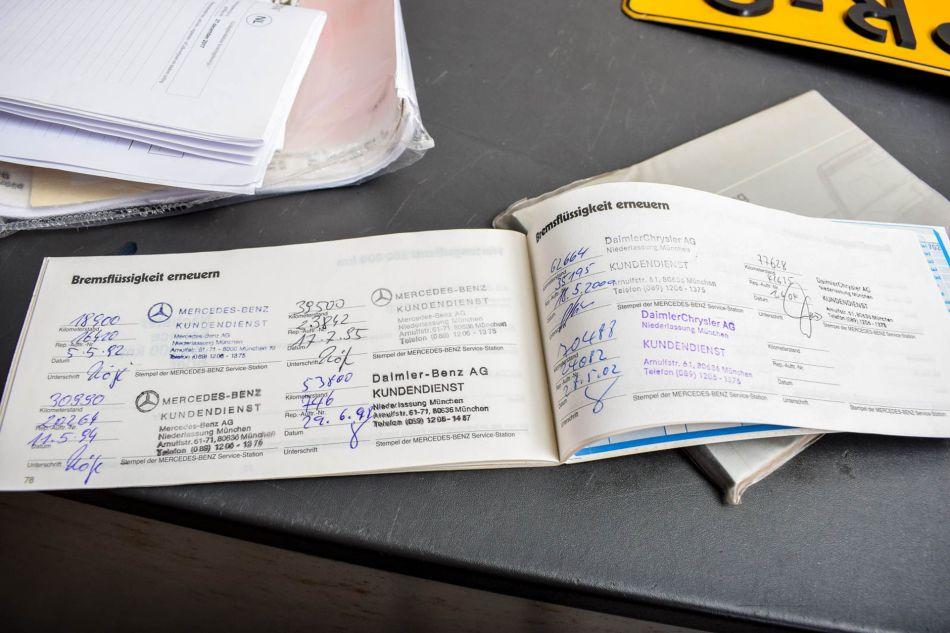 NL
27 december 2017
Bremsflüssigkeit erneuern
18900
Kilometerstand
16420
Rep.-Auftr.-Nr.
5.5.92
Datum
Unterschrift
MERCEDES-BENZ
KUNDENDIENST
Niederlassung München
Arnulfstr. 61-71 - 8000 München 19
Telefon (089) 1206 - 1375
Stempel der MERCEDES-BENZ Service-Station
39500
Kilometerstand
23842
Rep.-Auftr.-Nr.
17.7.95
Datum
Unterschrift
MERCEDES-BENZ
KUNDENDIENST
Niederlassung München
Arnulfstr. 61-71, 80636 München
Telefon (089) 1206 - 1375
Stempel der MERCEDES-BENZ Service-Station
30990
Kilometerstand
20264
Rep.-Auftr.-Nr.
11.5.94
Datum
Unterschrift
MERCEDES-BENZ
KUNDENDIENST
Niederlassung München
Arnulfstr. 61-71, 80636 München
Telefon (089) 1206 - 1375
Stempel der MERCEDES-BENZ Service-Station
53800
Kilometerstand
Rep.-Auftr.-Nr.
Datum
Unterschrift
Daimler-Benz AG
KUNDENDIENST
Niederlassung München
Arnulfstr. 61-71, 80636 München
Telefon (089) 1206 - 1487
Stempel der MERCEDES-BENZ Service-Station
78
Bremsflüssigkeit erneuern
62664
Kilometerstand
35195
Rep.-Auftr.-Nr.
18.5.2000
Datum
Unterschrift
DaimlerChrysler AG
Niederlassung München
KUNDENDIENST
Arnulfstr. 61, 80636 München
Telefon (089) 1206 - 1375
Stempel der MERCEDES-BENZ Service-Station
77628
Kilometerstand
Rep.-Auftr.-Nr.
Datum
Unterschrift
DaimlerChrysler AG
Niederlassung München
KUNDENDIENST
Arnulfstr. 61, 80636 München
Telefon (089) 1206 - 1375
Stempel der MERCEDES-BENZ Service-Station
Rep.-Auftr.-Nr.
27.5.02
Datum
Unterschrift
DaimlerChrysler AG
Niederlassung München
KUNDENDIENST
Arnulfstr. 61, 80636 München
Telefon (089) 1206 - 1375
Stempel der MERCEDES-BENZ Service-Station
Kilometerstand
Rep.-Auftr.-Nr.
Datum
Unterschrift
Stempel der MERCEDES-BENZ Service-Station